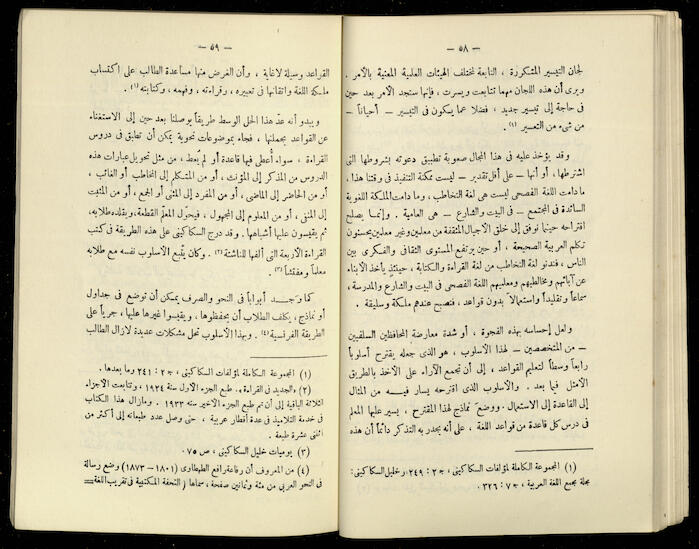 — ٥٨ —
لجان التيسير المتكررة ، التابعة لمختلف الهيئات العلمية المعنية بالأمر .
ويرى أن هذه اللجان مهما تتابعت ويسرت ، فإنها ستجد الأمر بعد حين
في حاجة إلى تيسير جديد ، فضلا عما يكون في التيسير — أحياناً —
من شيء من التعسير (١) .
وقد يؤخذ عليه في هذا المجال صعوبة تطبيق دعوته بشروطها التي
اشترطها ، أو أنها — على أقل تقدير — ليست ممكنة التنفيذ في وقتنا هذا ،
مادامت اللغة الفصحى ليست هي لغة التخاطب ، وما دامت الملكة اللغوية
السائدة في المجتمع — في البيت والشارع — هي العامية . وإنما يصلح
اقتراحه حينما نوفق إلى خلق الأجيال المثقفة من معلمين وغير معلمين يحسنون
تكلم العربية الصحيحة ، أو حين يرتفع المستوى الثقافي والفكري بين
الناس ، فتدنو لغة التخاطب من لغة القراءة والكتابة ، حينئذ يأخذ الأبناء
عن آبائهم ومخالطيهم ومعلميهم اللغة الفصحى في البيت والشارع والمدرسة ،
سماعاً وتقليداً واستعمالاً بدون قواعد ، فتصبح عندهم ملكة وسليقة .
ولعل إحساسه بهذه الفجوة ، أو شدة معارضة المحافظين السلفيين
— من المتخصصين — لهذا الأسلوب ، هو الذي جعله يقترح أسلوباً
رابعاً وسطاً لتعليم القواعد ، إلى أن تجمع الآراء على الأخذ بالطريق
الأمثل فيما بعد . والأسلوب الذي اقترحه يسار فيه من المثال
إلى القاعدة إلى الاستعمال . ووضع نماذج لهذا المقترح ، يسير عليها المعلم
في درس كل قاعدة من قواعد اللغة ، على أنه يجدر به التذكر دائماً أن هذه
(١) المجموعة الكاملة لمؤلفات السكاكيني ، ج ٢ : ٢٤٩ ر خليل السكاكيني :
مجلة مجمع اللغة العربية ، ج ٧ : ٣٢٦ .
— ٥٩ —
القراعد وسيلة لاغاية ، وأن الغرض منها مساعدة الطالب على اكتساب
ملكة اللغة واتقانها في تعبيره ، وقراءته ، وفهمه ، وكتابته (١) .
ويبدو أنه عدّ هذا الحل الوسط طريقاً يوصلنا بعد حين إلى الاستغناء
عن القواعد بجملتها ، فجاء بموضوعات نحوية يمكن أن تطبق في دروس
القراءة ، سواء أُعطى فيها قاعدة أو لم يُعط ، من مثل تحويل عبارات هذه
الدروس من المذكر إلى المؤنث ، أو من المتكلم إلى المخاطب أو الغائب ،
أو من الحاضر إلى الماضي ، أو من المفرد إلى المثنى أو الجمع ، أو من المثبت
إلى المنفى ، أو من المعلوم إلى المجهول ، فيحوّل المعلم القطعة، ويقلده طلابه،
ثم يقيسون عليها أشباهها . وقد درج السكاكيني على هذه الطريقة في كتب
القراءة الأربعة التي ألفها للناشئة (٢) . وكان يتّبع الأسلوب نفسه مع طلابه
معلماً ومفتشاً (٣) .
كما وجد أبواباً في النحو والصرف يمكن أن توضع في جداول
أو نماذج ، يكلف الطلاب أن يحفظوها ، ويقيسوا غيرها عليها ، جرياً على
الطريقة الفرنسية (٤) . وبهذا الأسلوب تحل مشكلات عديدة لازال الطالب
(١) المجموعة الكاملة لمؤلفات السكاكيني ، ج ٢ : ٢٤١ وما بعدها .
(٢) «الجديد في القراءة» . طبع الجزء الأول سنة ١٩٢٤ ، وتتابعت الأجزاء
الثلاثة الباقية إلى أن تم طبع الجزء الأخير سنة ١٩٣٣ . ومازال هذا الكتاب
في خدمة التلاميذ في عدة أقطار عربية ، حتى وصل عدد طبعاته إلى أكثر من
اثنتي عشرة طبعة .
(٣) يوميات خليل السكاكيني ، ص ٧٥ .
(٤) من المعروف أن رفاعة رافع الطهطاوي (١٨٠١ – ١٨٧٣) وضع رسالة
في النحو العربي من مئة وثمانين صفحة ، سماها (التحفة المكتبية في تقريب اللغة =